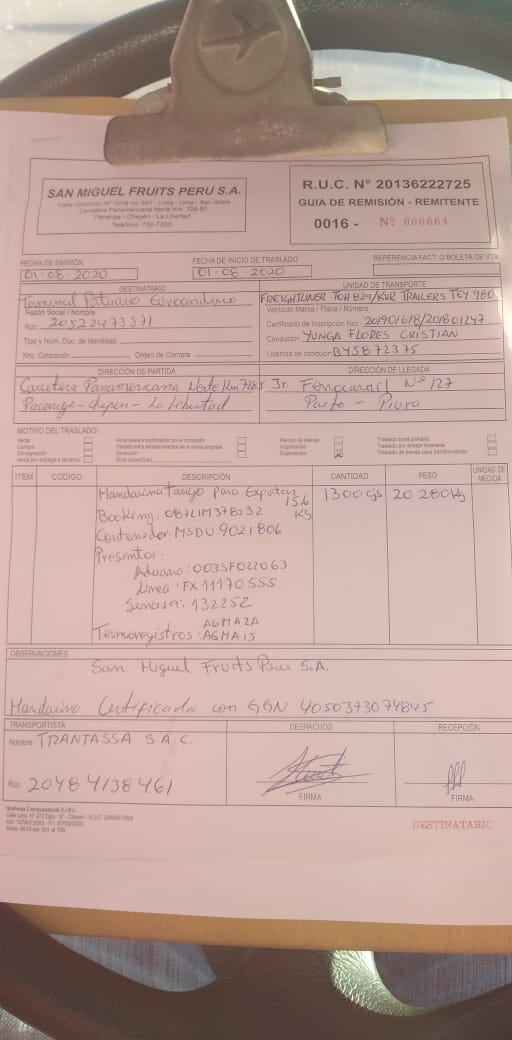 SAN MIGUEL FRUITS PERU S.A.
Carretera Panamericana Norte Km. 728.80
Pacanga - Chepén - La Libertad
Teléfono 730-7300
R.U.C. N° 20136222725
GUIA DE REMISIÓN - REMITENTE
0016 - Nº 000664
FECHA DE EMISIÓN
01-08-2020
FECHA DE INICIO DE TRASLADO
01-08-2020
REFERENCIA FACT. O BOLETA DE VTA
DESTINATARIO
Terminal Portuario Euroandino
Razón Social / Nombre
Ruc: 20522473571
Tipo y Num. Doc. de Identidad:
Nro. Cotización Orden de Compra
UNIDAD DE TRANSPORTE
FREIGHTLINER TOH 829/KUR TRAILERS TEY 980
Vehículo Marca / Placa / Número
Certificado de Inscripción Nro.: 201901618/201801247
Conductor: YUNGA FLORES CRISTIAN
Licencia de conducir: B45872375
DIRECCIÓN DE PARTIDA
Carretera Panamericana Norte Km 728.5
Pacanga - chepen - La Libertad
DIRECCIÓN DE LLEGADA
Jr. Ferrocarril Nº 127
Paita - Piura
MOTIVO DEL TRASLADO:
Venta
Compra
Consignación
Venta con entrega a terceros
Venta sujeta a confirmación por el comprador
Traslado entre establecimientos de la misma empresa
Devolución
Otros (especificar)
Recojo de bienes
Importación
Exportación
Traslado zona primaria
Traslado por emisor itinerante
Traslado de bienes para transformación
ITEM CODIGO DESCRIPCIÓN CANTIDAD PESO UNIDAD DE MEDIDA
Mandarina Tango Para Exportar 15.6 Kg 1300 cjs 20 280 Kg
Booking: 087LIM378532
Contenedor: MSDU 9021806
Presintos:
Aduana: 0035F022063
Linea: FX11170555
Senasa: 132252
Termoregistros: AGMA2A
AGMA1J
OBSERVACIONES
San Miguel Fruits Peru S.A.
Mandarina Certificada con GGN 4050373074845
TRANSPORTISTA
Nombre TRANTASSA S.A.C.
Ruc 20484138461
DESPACHOS
FIRMA
RECEPCIÓN
FIRMA
Graficas Computadoras E.I.R.L.
DESTINATARIO